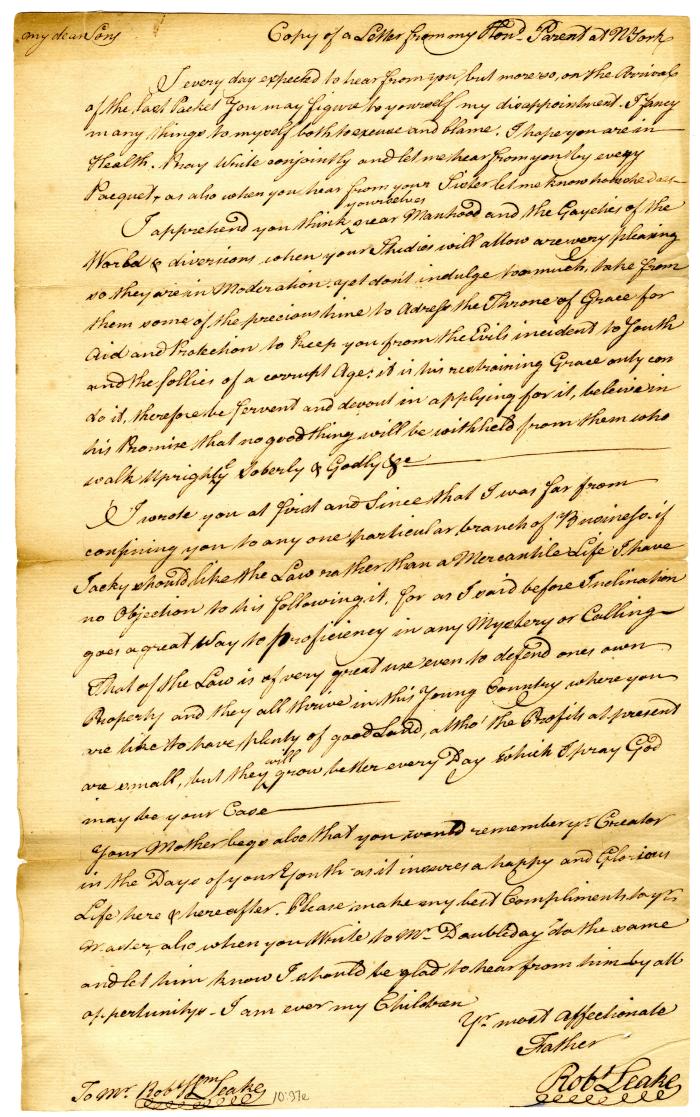 my dear Sons
Copy of a Letter from my Hond. Parent at N York
I every day expected to hear from you, but more so, on the Arrival
of the last Packet You may figure to yourself my disappointment. I fancy
many things to myself both to excuse and blame. I hope you are in
Health. Pray Write conjointly and let me hear from you by every
Pacquet, as also when you hear from your Sister let me know how she does
yourselves
I apprehend you think ^ near Manhood and the Gayeties of the
World & diversions when your Studies will allow are very pleasing
so they are in Moderation. yet don't indulge too much, take from
them some of the precious time to Adress the Throne of Grace for
Aid and Protection to keep you from the Evils incident to Youth
and the follies of a corrupt Age: it is his restraining Grace only can
do it, therefore be fervent and devout in applying for it, beleive in
his Promise that no good thing will be withheld from them who
walk Uprightly Soberly & Godly &c
I wrote you at first and Since that I was far from
confining you to any one particular branch of Business. if
Jacky should like the Law rather than a Mercantile Life I have
no Objection to his following it, for as I said before Inclination
goes a great Way to proficiency in any Mystery or Calling
That of the Law is of very great use even to defend ones own
Property and they all thrive in this Young Country where you
are like to have plenty of good Land, altho' the Profits at present
will
are small, but they ^ grow better every Day which I pray God
may be your Case
Your Mother begs also that you would remember yr. Creator
in the Days of your Youth as it insures a happy and Glorious
Life here & hereafter. Please make my best Compliments to yr.
Master, also when you Write to Mr. Doubleday do the same
and let him know I should be glad to hear from him by all
oppertunitys - I am ever my Children
Yr. most Affectionate
Father
Robt. Leake
To Mr. Robt. Wm Leake 10:97e